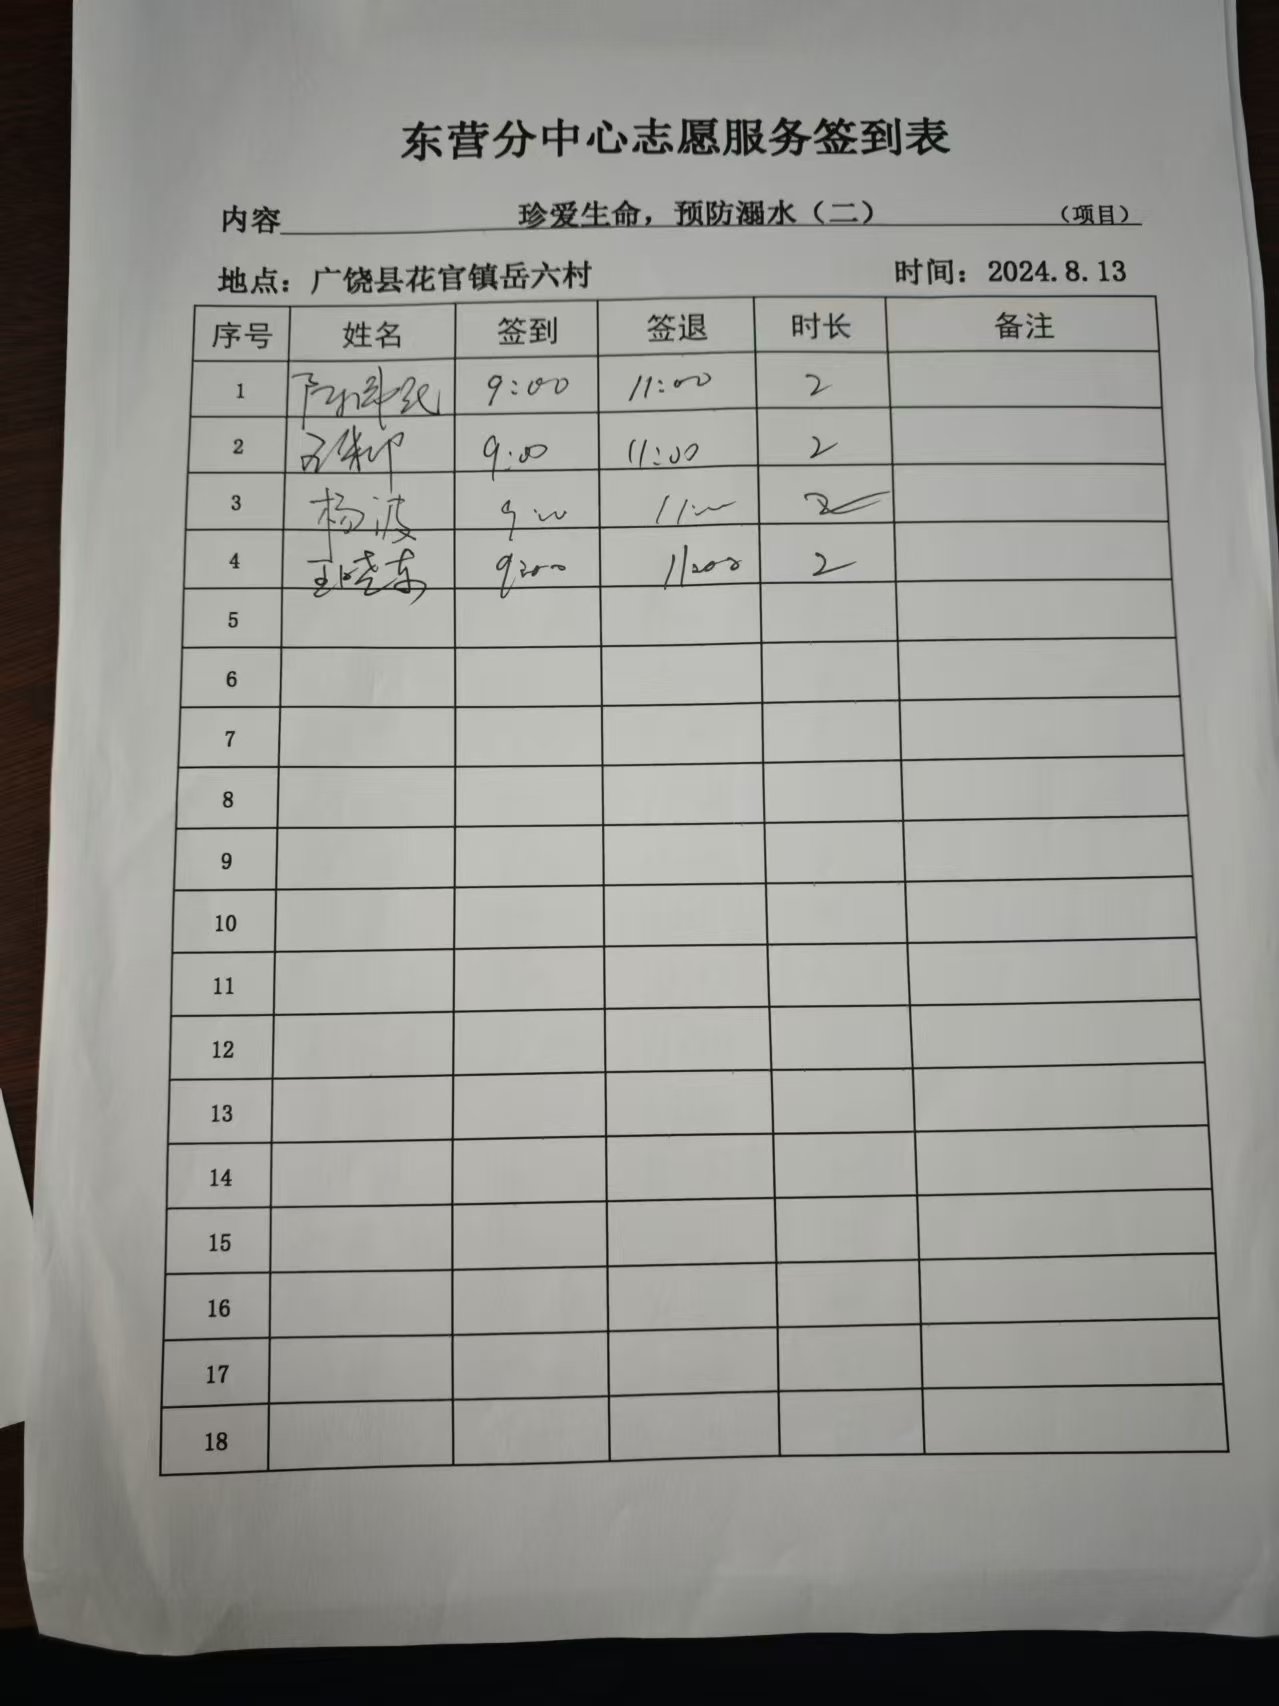 东营分中心志愿服务签到表
内容 珍爱生命，预防溺水（二） （项目）
地点：广饶县花官镇岳六村 时间：2024.8.13
序号 姓名 签到 签退 时长 备注
1 9:00 11:00 2
2 9:00 11:00 2
3 杨波 9:00 11:00 2
4 王晓东 9:00 11:00 2
5
6
7
8
9
10
11
12
13
14
15
16
17
18